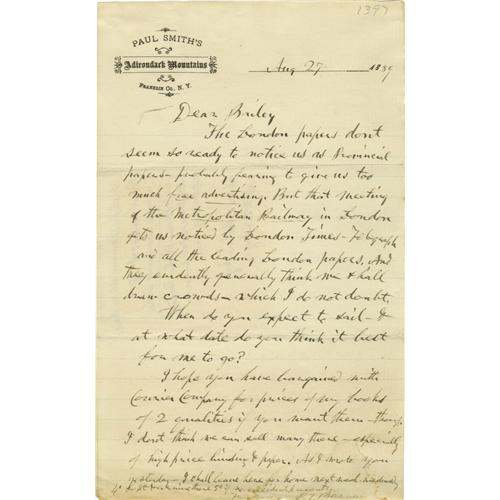 1397
PAUL SMITH'S
Adirondack Mountains
FRANKLIN CO., N.Y.
Aug 27 1889
Dear Bailey
The London papers dont
seem so ready to notice us as Provincial
papers - probably fearing to give us too
much free advertising. But that meeting
of the Metropolitan Railway in London
gets us noticed by London Times - Telegraph
and all the leading London papers. And
they evidently generally think we shall
draw crowds - which I do not doubt.
When do you expect to sail - &
at what date do you think it best
for me to go?
I hope you have bargained with
Courier Company for prices of my books
of 2 qualities if you want them - though
I dont think we can sell many there - especially
of high price binding & paper. As I wrote you
yesterday - I shall leave here for home next week